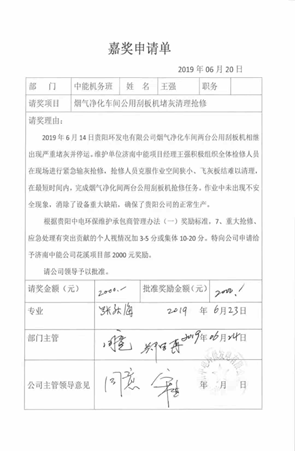 嘉奖申请单
2019 年 06 月 20 日
部 门 中能机务班 姓 名 王强 职务
请奖项目 烟气净化车间公用刮板机堵灰清理抢修
请奖理由：
2019 年 6 月 14 日贵阳环发电有限公司烟气净化车间两台公用刮板机相继
出现严重堵灰并停运。维护单位济南中能项目经理王强积极组织全体检修人员
在现场进行紧急输灰抢修，抢修人员克服作业空间狭小、飞灰板结难以清理，
在最短时间内，完成烟气净化间两台公用刮板机抢修任务。作业中未出现不安
全现象，消除了设备重大缺陷，确保了贵阳公司的正常生产。
根据贵阳中电环保维护承包商管理办法（一）奖励标准。7、重大抢修、
应急处理有突出贡献的个人视情况加 3-5 分或集体 10-20 分。特向公司申请给
予济南中能公司花溪项目部 2000 元奖励。
请公司领导予以批准。
请奖金额（元） 2000.- 批准奖励金额（元） 2000.-
专业 2019 年 6 月 23 日
部门主管 2019 年 06 月 24 日
公司主管领导意见 同意 年 月 日